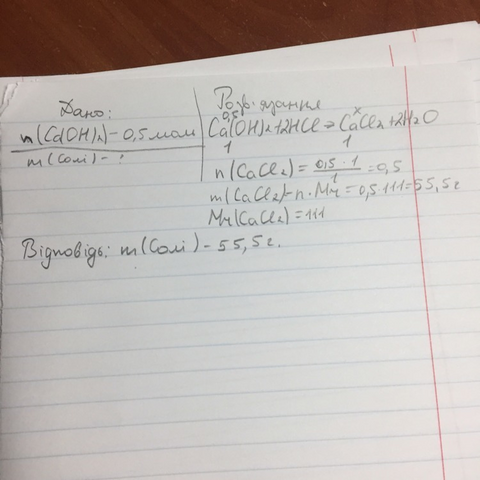 Дано:
n(Ca(OH)₂) - 0,5 моль
m(Солі) - ?
Розв'язання
0,5 x
Ca(OH)₂+2HCl = CaCl₂+2H₂O
1 1
n(CaCl₂) = 0,5·1/1 = 0,5
m(CaCl₂)=n·Mr = 0,5·111=55,5г
Mr(CaCl₂)=111
Відповідь: m(Солі) - 55,5г.